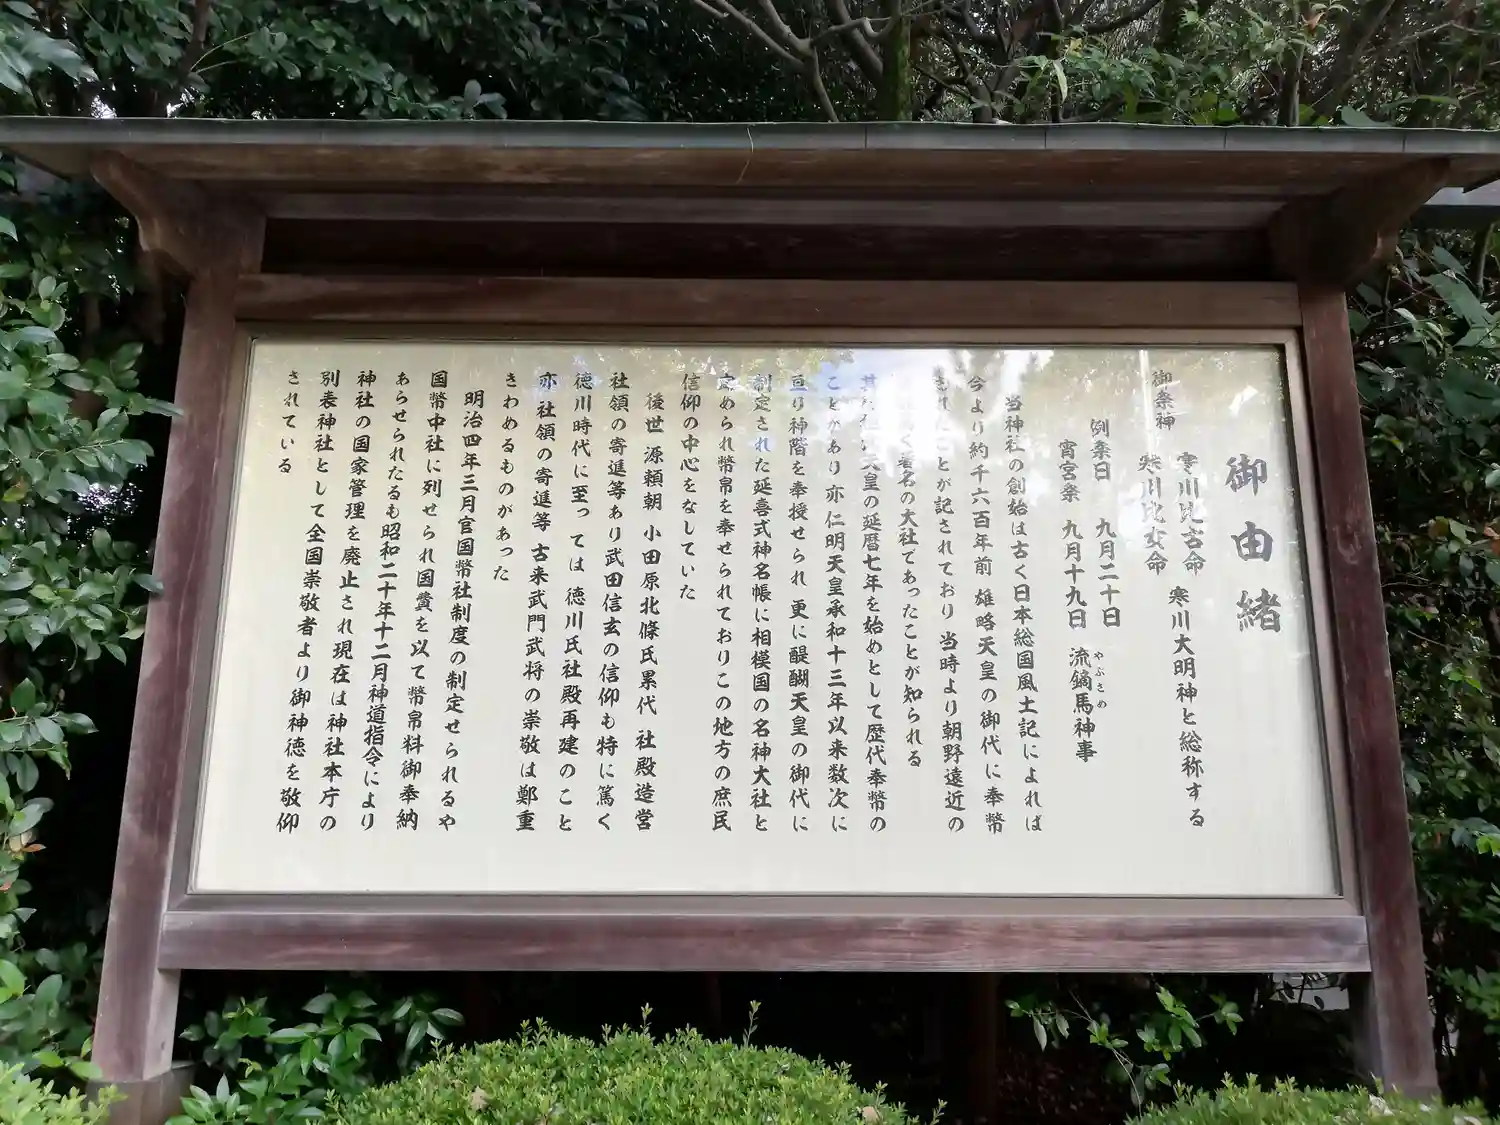 御由緒
御祭神 寒川比古命
寒川比女命 寒川大明神と総称する
例祭日 九月二十日
宵宮祭 九月十九日 流鏑馬神事
やぶさめ
当神社の創始は古く日本総国風土記によれば
今より約千六百年前 雄略天皇の御代に奉幣
されたことが記されており 当時より朝野遠近の
く著名の大社であったことが知られる
天皇の延暦七年を始めとして歴代奉幣の
ことがあり 亦仁明天皇承和十三年以来数次に
亘り神階を奉授せられ 更に醍醐天皇の御代に
制定された延喜式神名帳に相模国の名神大社と
定められ幣帛を奉せられておりこの地方の庶民
信仰の中心をなしていた
後世 源頼朝 小田原北條氏累代 社殿造営
社領の寄進等あり武田信玄の信仰も特に篤く
徳川時代に至っては 徳川氏社殿再建のこと
亦 社領の寄進等 古来武門武将の崇敬は鄭重
きわめるものがあった
明治四年三月官国幣社制度の制定せられるや
国幣中社に列せられ国費を以て幣帛料御奉納
あらせられたるも昭和二十年十二月神道指令により
神社の国家管理を廃止され現在は神社本庁の
別表神社として全国崇敬者より御神徳を敬仰
されている